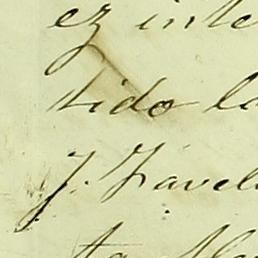 ez inte
tido la
J. Zavel
ta